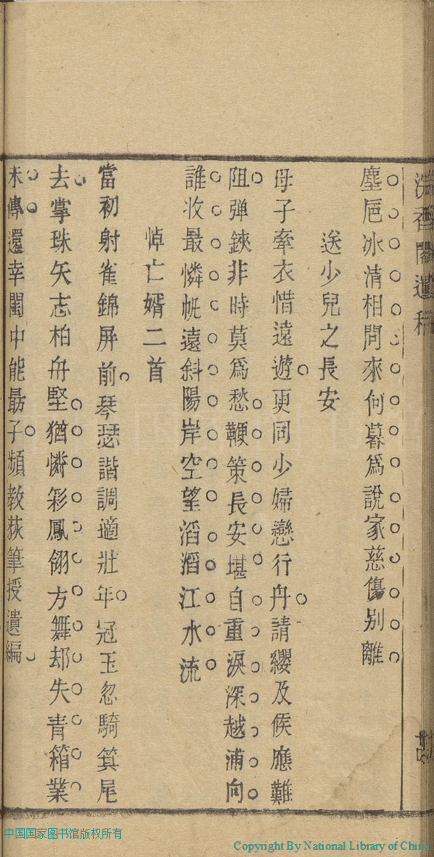 塵巵冰清相閒來何暮爲說家慈傷別離
送少兒之長安
母子牽衣惜遠遊更同少婦戀行舟請纓及侯應難
阻彈鋏非時莫爲愁鞭策長安堪自重淚深越浦向
誰收最憐帆遠斜陽岸空望滔滔江水流
悼亡婿二首
當初射雀錦屏前琴瑟諧調適壯年冠玉忽騎箕尾
去掌珠矢志柏舟堅猶憐彩鳳翎方舞却失青箱業
未傳還幸閨中能勗子頻教荻筆授遺編
中国国家图书馆版权所有
Copyright By National Library of China